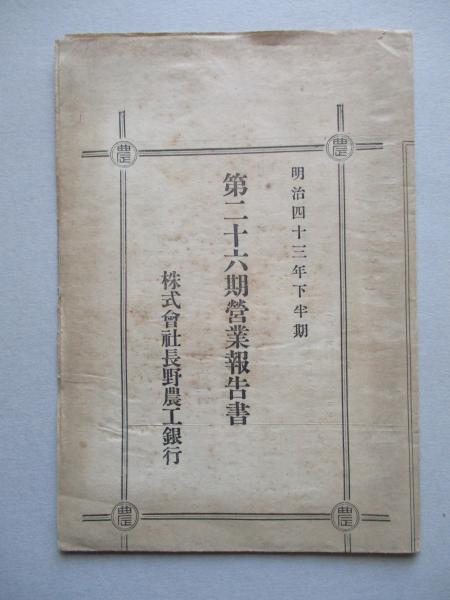 明治四十三年下半期
第二十六期營業報告書
株式會社長野農工銀行
農
農
農
農